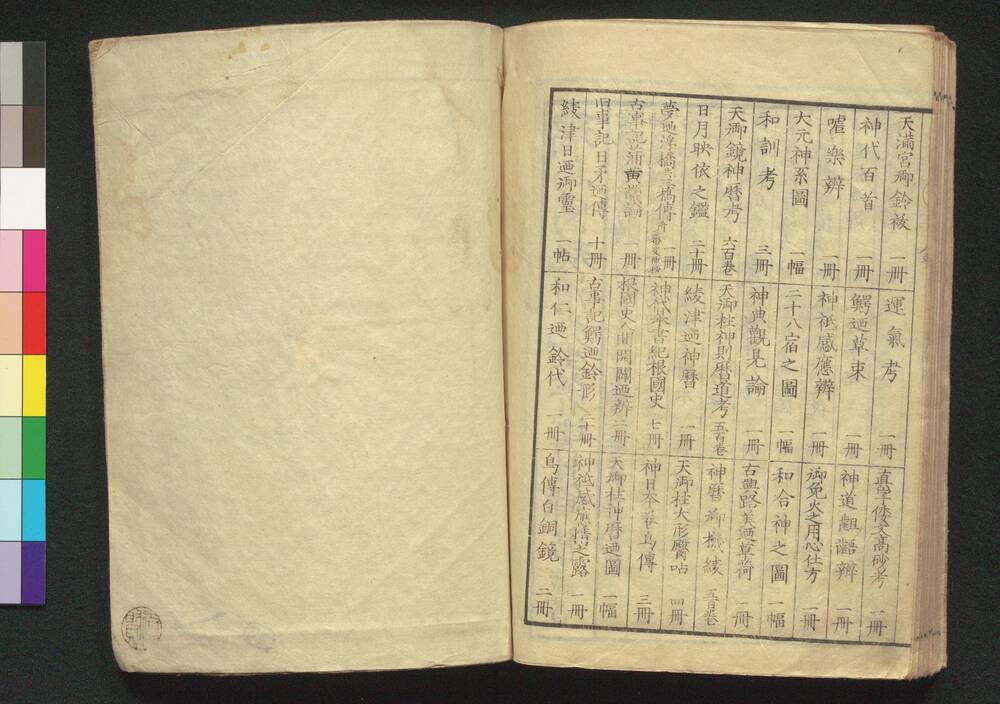 天満宮御鈴祓 一冊
神代百首 一冊
嘘楽辨 一冊
大元神系圖 一幅
和訓考 三冊
天御鏡神暦考 六百巻
日月映依之鑑 二十冊
夢廼浮橋 橋傳 一冊
古事記 一冊
旧事記日矛廼傳 十冊
綾津日廼御霊 一帖
運氣考 一冊
鰐廼草束 一冊
神祇感應辨 一冊
二十八宿之圖 一幅
神典觀見論 一冊
天御柱神則暦道考 五百巻
綾津廼神暦 一冊
神代本書紀根國史 七冊
根國史 開闢廼辨 二冊
古事記鰐廼鈴形 二十冊
和仁廼鈴代 一冊
直学倭文高砂考 一冊
神道齟齬辨 一冊
御免火之用心仕方 一冊
和合神之圖 一幅
古興路美廼草荷 一冊
神暦御機綾 五百巻
天御柱大形 四冊
神日本巻鳥傳 三冊
天御柱神暦廼圖 一幅
神祇感應精之露 一冊
鳥傳白銅鏡 二冊